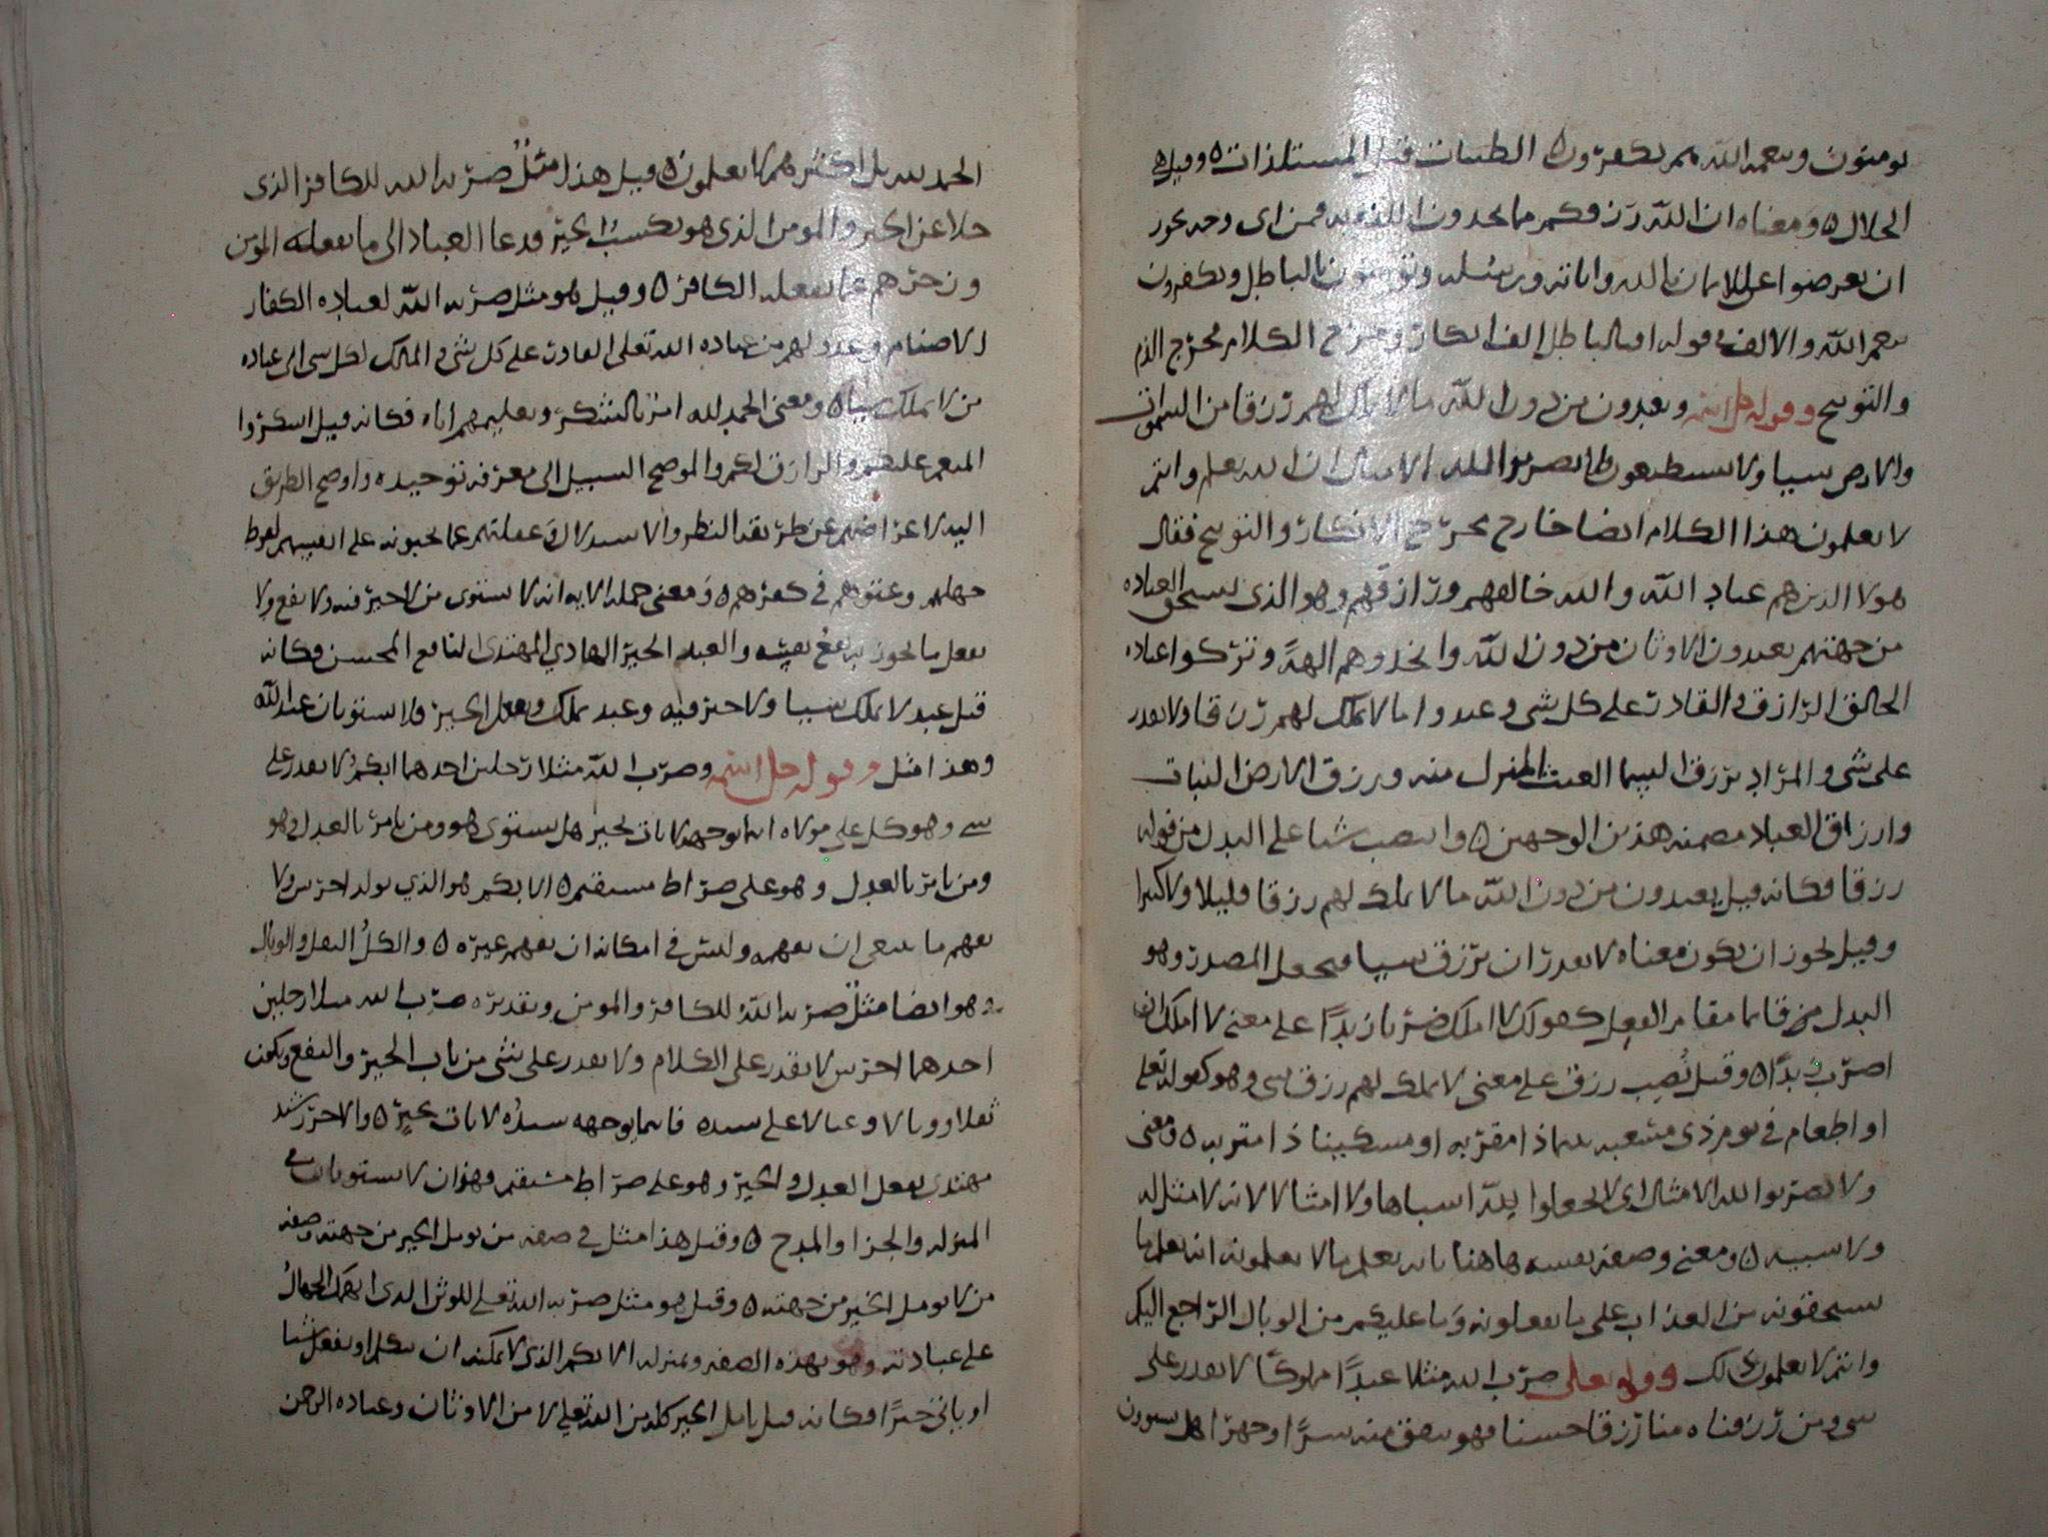 يومنون وبنعمه الله هم يكفرون ٥ الطيبات قيل المستلذات ٥ وقيل هى
الحلال ٥ ومعناه ان الله رزقكم ما تجدون اللذه به فمن اى وجه يجوز
ان يعرضوا على الايمان بالله واياته ورسله ويومنون بالباطل ويكفرون
بنعم الله والالف فى قوله افبالباطل الف انكار ومخرج الكلام مخرج الذم
والتوبيخ وقوله جل اسمه ويعبدون من دون الله ما لا يملك لهم رزقا من السموات
والارض شيا ولا يستطيعون فلا تضربوا لله الامثال ان الله يعلم وانتم
لا تعلمون هذا الكلام ايضا خارج مخرج الانكار والتوبيخ فقال
هولا الذين هم عباد الله والله خالقهم ورازقهم وهو الذى يستحق العباده
من جهتهم يعبدون الاوثان من دون الله واتخذوهم الهةً وتركوا عباده
الخالق الرازق والقادر على كل شى وعبدوا ما لا يملك لهم رزقا ولا يقدر
على شى والمراد برزق السما الغيث المنزل منه ورزق الارض النبات
وارزاق العباد مضمنه هذين الوجهين ٥ وانتصب شيا على البدل من قوله
رزقا فكانه قيل يعبدون من دون الله ما لا يملك لهم رزقا قليلا ولا كثيرا
وقيل يجوز ان يكون معناه لا يقدر ان يرزق شيا فيجعل المصدر وهو
البدل من قايما مقام الفعل كقولك لا املك ضربا زيدًا على معنى لا املك ان
اضرب زيدًا ٥ وقيل نُصِب رزق على معنى لا يملك لهم رزق شى وهو كقوله تعلى
او اطعام فى يوم ذى مسغبه يتيما ذا مقربه او مسكينا ذا متربه ٥ ومعنى
ولا تضربوا لله الامثال اى لا تجعلوا للهِ اشباها ولا امثالا لانه لا مثل له
ولا شبيه ٥ ومعنى وصفه نفسه هاهنا بانه يعلم ما لا يعلمونه انه يعلم ما
تستحقونه من العذاب على ما تفعلونه وما عليكم من الوبال الراجع اليكم
وانتم لا تعلمون ذلك وقوله تعلى ضرب الله مثلا عبدًا مملوكًا لا يقدر على
شى ومن رزقناه منا رزقا حسنا فهو ينفق منه سرًا وجهرًا هل يستوون
الحمد لله بل اكثرهم لا يعلمون ٥ قيل هذا مثلٌ ضربه الله للكافر الذى
خلا عن الخير والمومن الذى هو يكسبُ الخير ودعا العباد الى ما يفعله المومن
وزجرهم عما يفعله الكافر ٥ وقيل هو مثل ضربه الله لعباده الكفار
الاصنام وعدولهم من عباده الله تعلى القادر على كل شى والمالك لكل شى الى عباده
من لا يملك شيا ٥ ومعنى الحمد لله امر بالشكر وتعليمهم اياه فكانه قيل اشكروا
المنعم عليكم والرازق لكم والموضح السبيل الى معرفه توحيده واوضح الطريق
اليه لاعراضهم عن طريقه النظر والاستدلال وغفلتهم عما يجنونه على انفسهم لفرط
جهلهم وعتوهم فى كفرهم ٥ ومعنى جمله الايه انه لا يستوى من لا خير فيه ولا نفع ولا
يفعل ما يجوز به نفع نفسه والعبد الخير الهادى المهتدى النافع المحسن فكانه
قيل عبد لا يملك شيا ولا خير فيه وعبد يملك ويفعل الخير فلا يستويان عند الله
وهذا مثل وقوله جل اسمه وضرب الله مثلا رجلين احدهما ابكمُ لا يقدر على
شى وهو كل على مولاه اينما يوجهه لا يات بخير هل يستوى هو ومن يامر بالعدل وهو
ومن يامر بالعدل وهو على صراط مستقيم ٥ الابكم هو الذى يولد اخرس ولا
يفهم ما ينبغى ان يفهمه وليس فى امكانه ان يفهم غيره ٥ والكلُ الثقل والوبال
وهو ايضا مثلٌ ضربه الله للكافر والمومن وتقديره ضرب الله مثلا رجلين
احدهما اخرس لا يقدر على الكلام ولا يقدر على شى من باب الخير والنفع ويكون
ثقلا ووبالا وعيالا على سيده فاينما يوجهه سيدُه لا يات بخير ٥ والاخر رشيد
مهتدى يفعل العدل والخير وهو على صراط مستقيم وهذان لا يستويان فى
المنزله والجزا والمدح ٥ وقيل هذا مثل فى صفه من يومل الخير من جهته وصفه
من لا يومل الخير من جهته ٥ وقيل هو مثل ضربه الله تعلى للوثن الذى انهمك الجهالُ
على عبادته وهو بهذه الصفه وبمنزله الابكم الذى لا يمكنه ان يتكلم او يفعل شيا
او ياتى خيرًا فكانه قيل يامل الخير كله من الله تعلى لا من الاوثان وعباده الرحمن